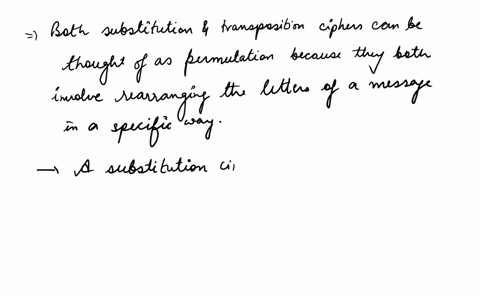 =) Both substitution & transposition ciphers can be
thought of as permulation because they both
involve rearranging the letters of a message
in a specific way.
→ A substitution ci,